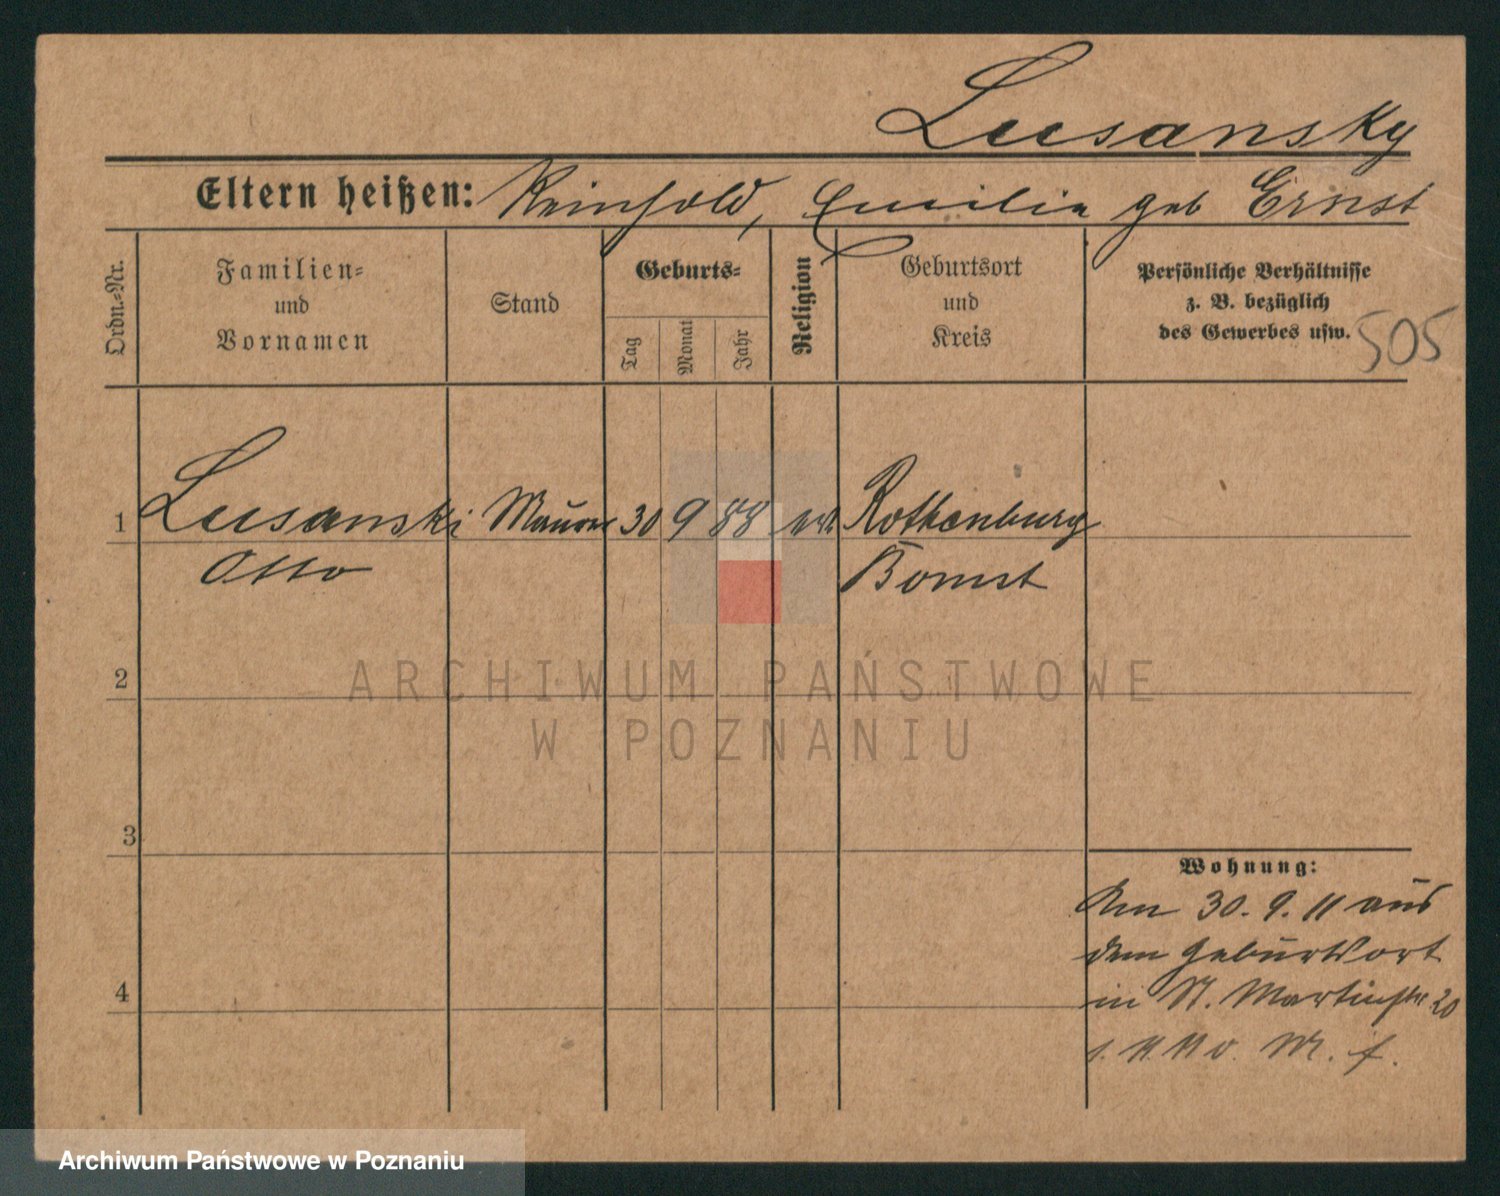 Lusansky
Eltern heißen: Reinhold, Emilie geb Ernst
Ordn.-Nr.
Familien-
und
Vornamen
Stand
Geburts-
Tag
Monat
Jahr
Religion
Geburtsort
und
Kreis
Persönliche Verhältnisse
z. B. bezüglich
des Gewerbes usw.
505
1 Lusanski Maurer 30 9 88 Rothenburg
Otto Bomst
2
3
4
Wohnung:
Am 30. 9. 11 aus
dem Geburtsort
in St. Martinstr 20
ARCHIWUM PAŃSTWOWE
W POZNANIU
Archiwum Państwowe w Poznaniu